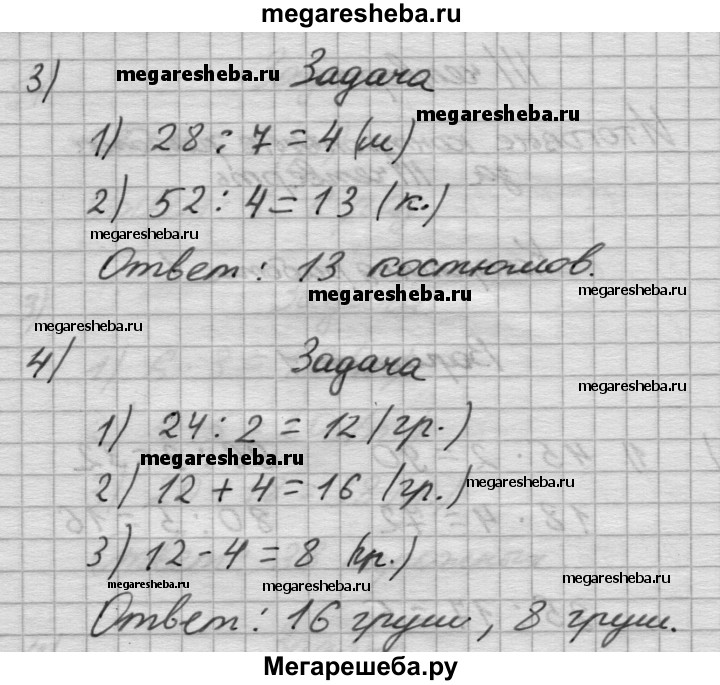 megaresheba.ru
3) megaresheba.ru Задача
megaresheba.ru
1) 28 : 7 = 4 (м)
2) 52 : 4 = 13 (к.)
megaresheba.ru
Ответ: 13 костюмов.
megaresheba.ru megaresheba.ru
megaresheba.ru
4) Задача
megaresheba.ru
1) 24 : 2 = 12 (гр.)
megaresheba.ru
2) 12 + 4 = 16 (гр.) megaresheba.ru
3) 12 - 4 = 8 (гр.)
megaresheba.ru megaresheba.ru megaresheba.ru
Ответ: 16 груш, 8 груш.
Мегарешеба.ру